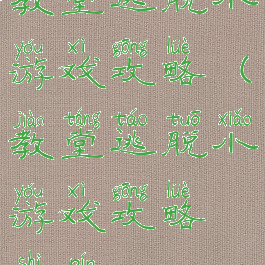 教堂逃脱小
yóu xì gōng lüè
游戏攻略（
jiào táng táo tuō xiǎo
教堂逃脱小
yóu xì gōng lüè
游戏攻略
shì pín